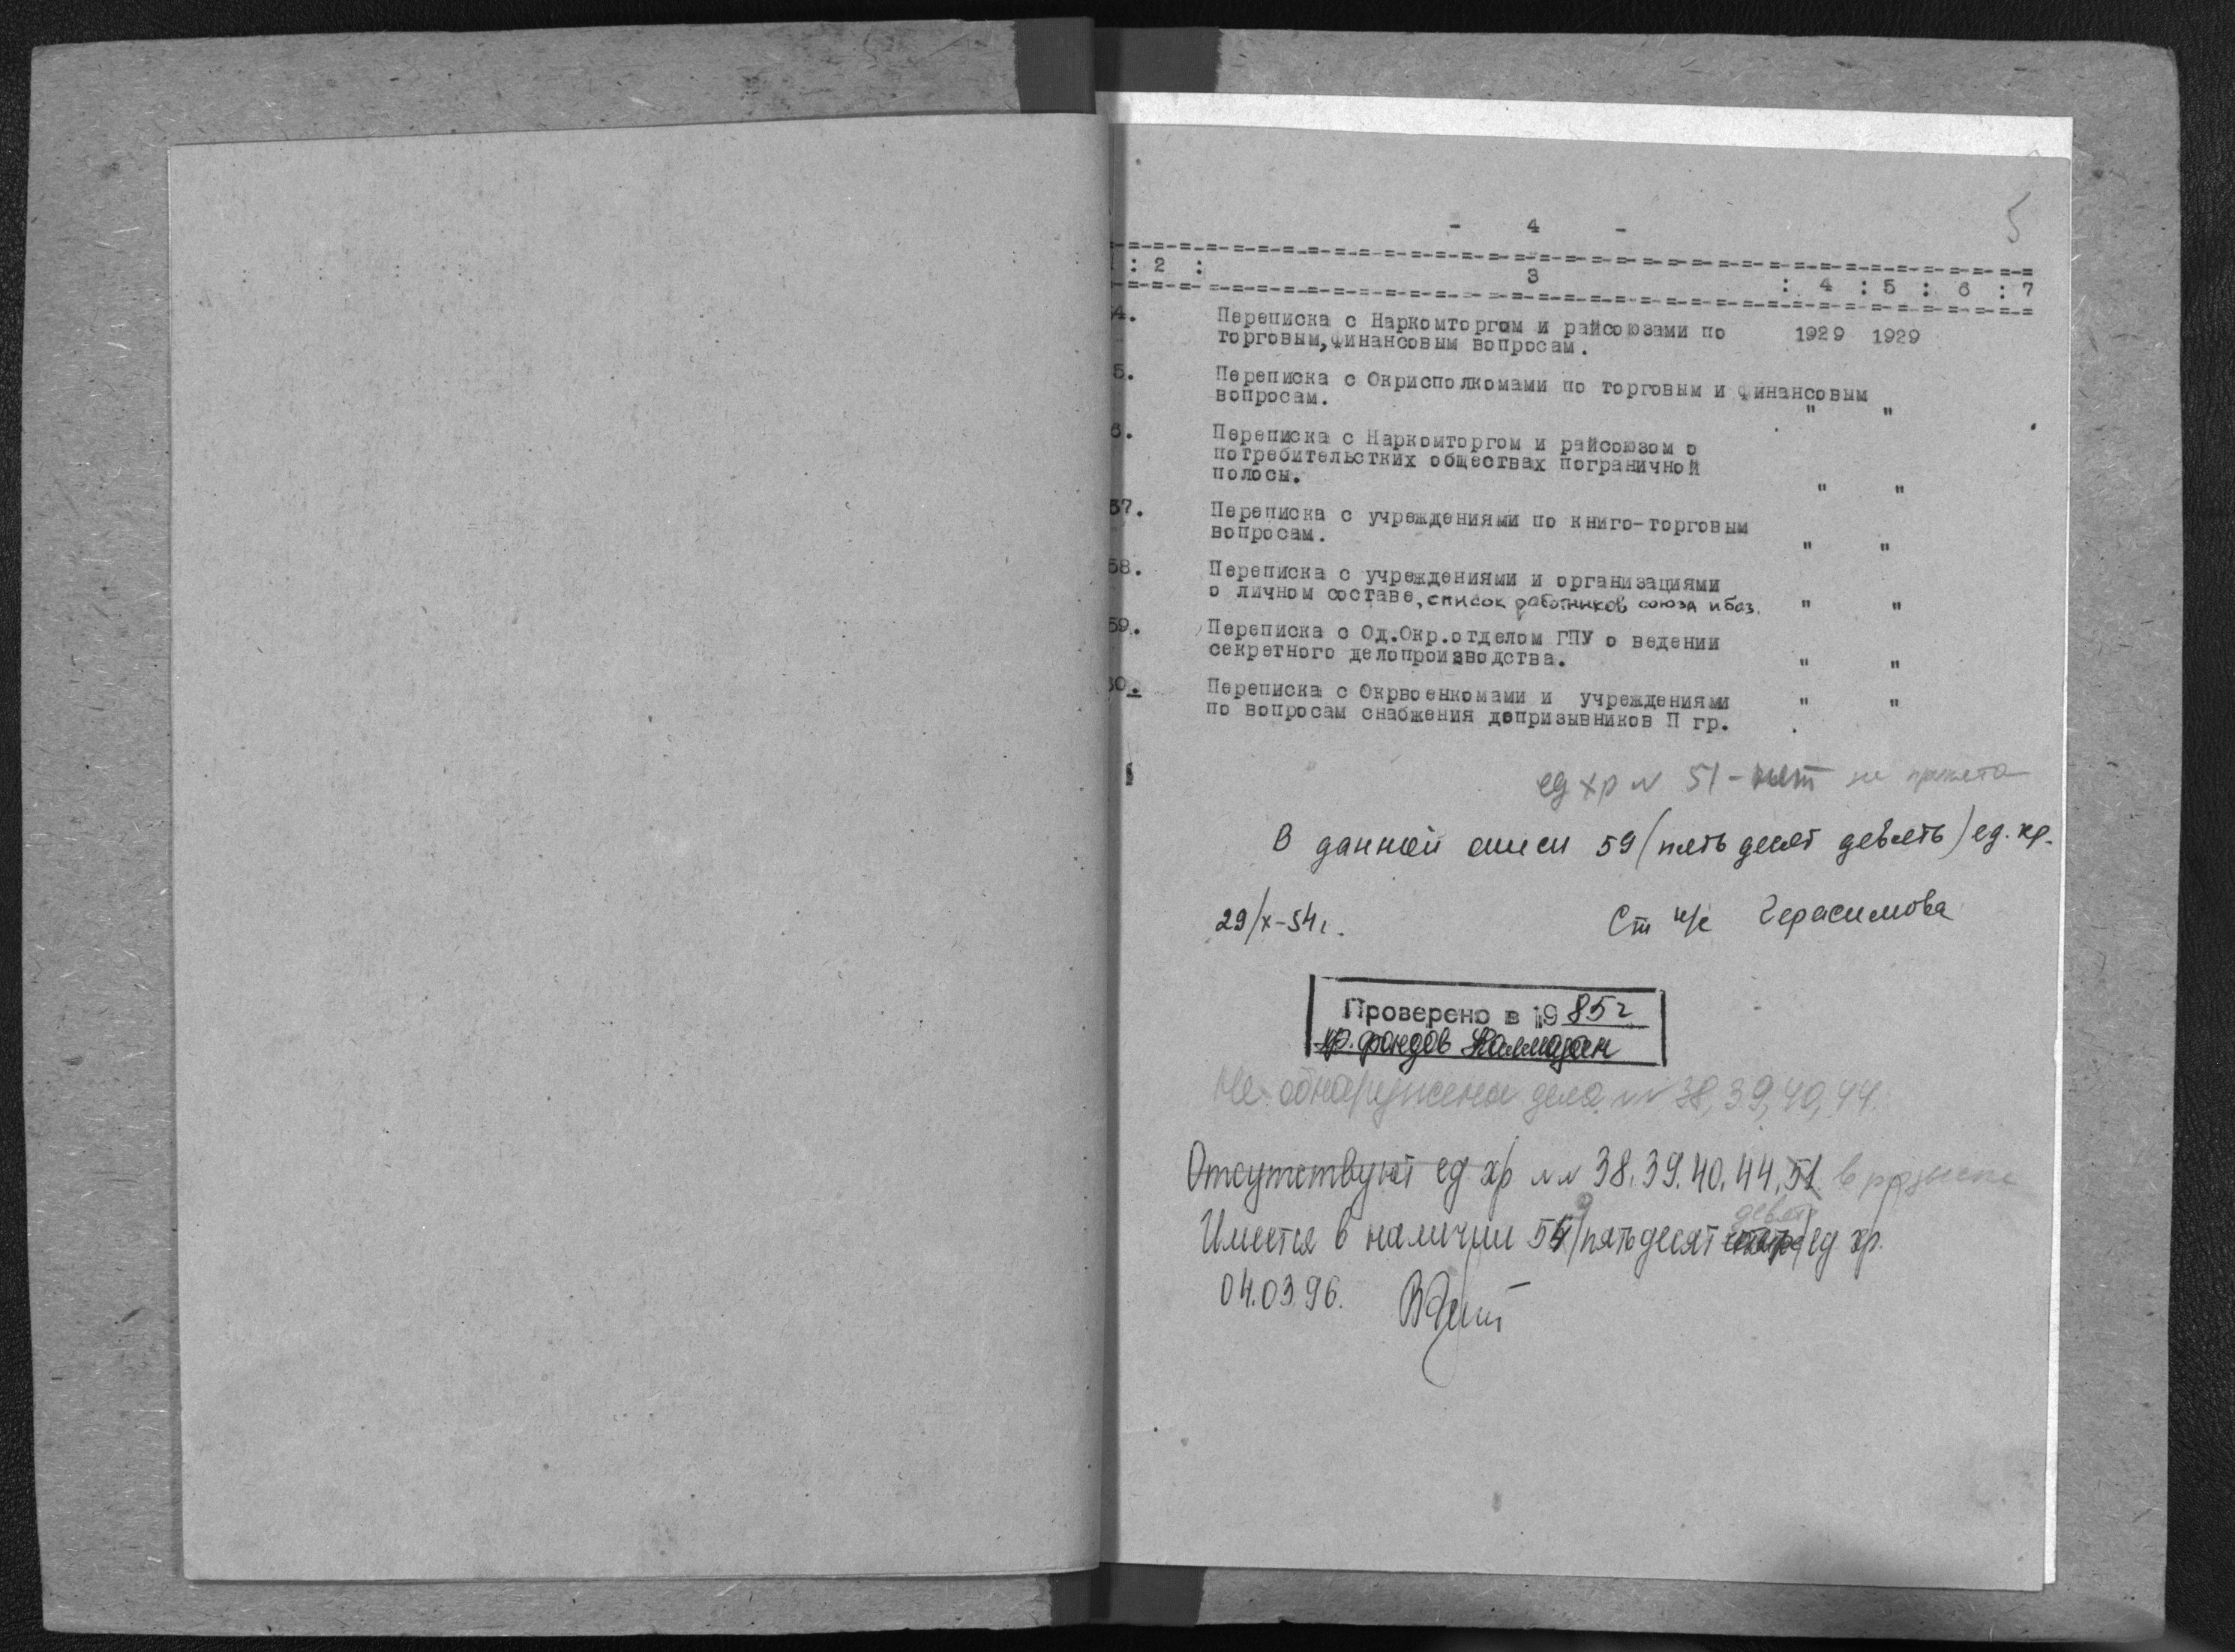 5
- 4 -
: 2 : 3 : 4 : 5 : 6 : 7
4. Переписка с Наркомторгом и райсоюзами по 1929 1929
торговым,финансовым вопросам.
5. Переписка с Окрисполкомами по торговым и финансовым
вопросам. " "
6. Переписка с Наркомторгом и райсоюзом о
потребительстких обществах пограничной
полосы. " "
57. Переписка с учреждениями по книго-торговым
вопросам. " "
58. Переписка с учреждениями и организациями
о личном составе, список работников союза и баз. " "
59. Переписка с Од.Окр.отделом ГПУ о ведении
секретного делопроизводства. " "
60. Переписка с Окрвоенкомами и учреждениями " "
по вопросам снабжения допризывников П гр.
ед хр № 51 - нет не
В данной описи 59 (пятьдесят девять) ед. хр.
29/X-54г. Ст н/с Герасимова
Проверено в 1985г
хр. фондов
Не обнаружены дела №№ 38, 39, 40, 44.
Отсутствуют ед хр №№ 38. 39. 40. 44, 51.
Имеется в наличии 59 (пятьдесят девять) ед хр.
04.03.96.